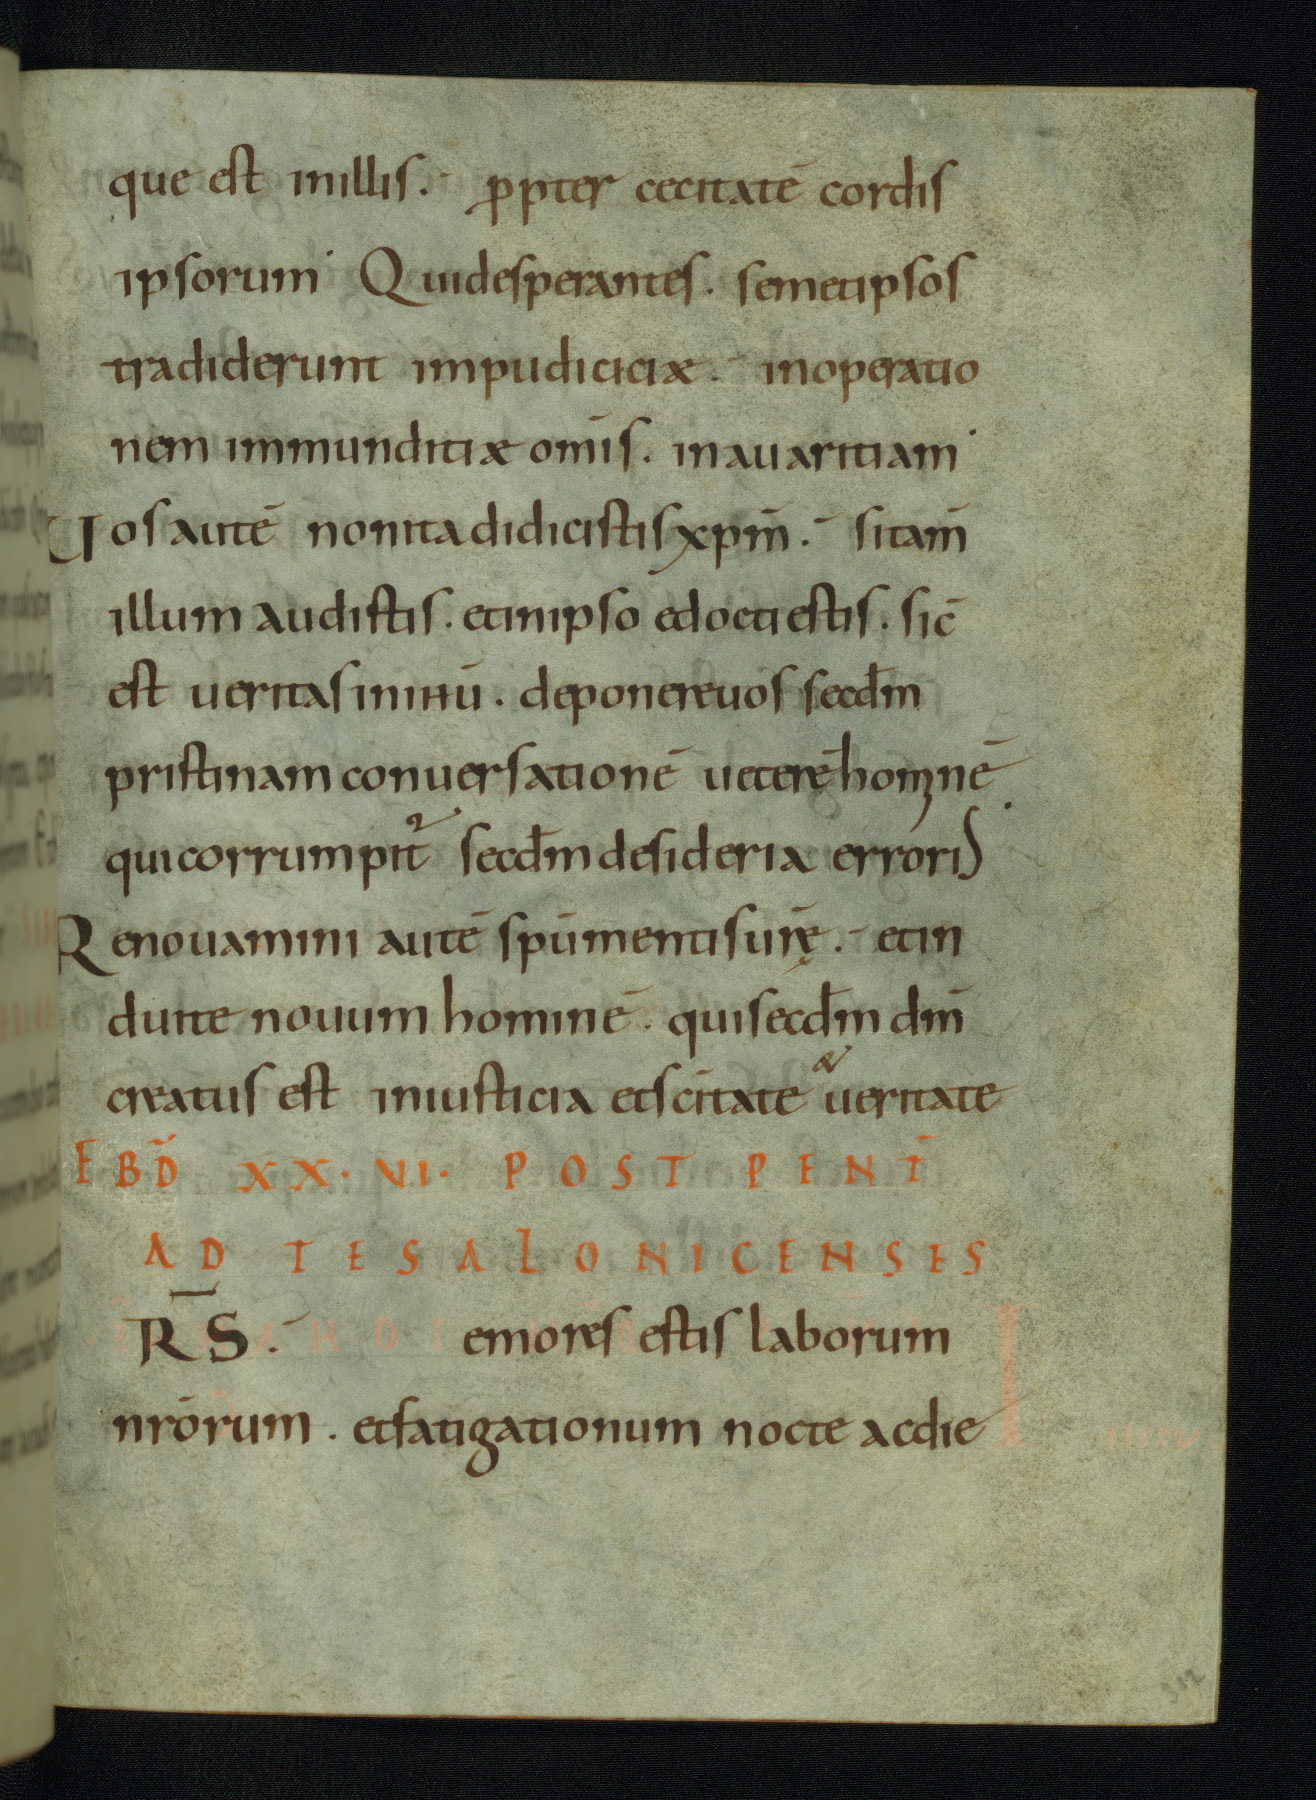 que est inillis. ꝓpter cecitatē cordis
ipsorum. Quidesperantes. semetipsos
tradiderunt impudiciciæ. inoperatio
nem immunditiæ om̄is. inauaritiam.
Uos autē nonita didicistis xpm̄. sitam̄
illum audistis. et inipso edocti estis. sic̄
est ueritas inihū. deponere uos secd̄m
pristinam conuersationē ueterē hominē.
qui corrumpit᷑ secd̄m desideria erroris
Renouamini autē spū mentis ur̄ę. et in
duite nouum hominē. qui secd̄m dm̄
creatus est iniusticia et sc̄itate & ueritate
EBD̄ XX.VI. POST PENT̄
AD TESALONICENSES
FR̄S. emores estis laborum
nr̄orum. et fatigationum nocte ac die
312